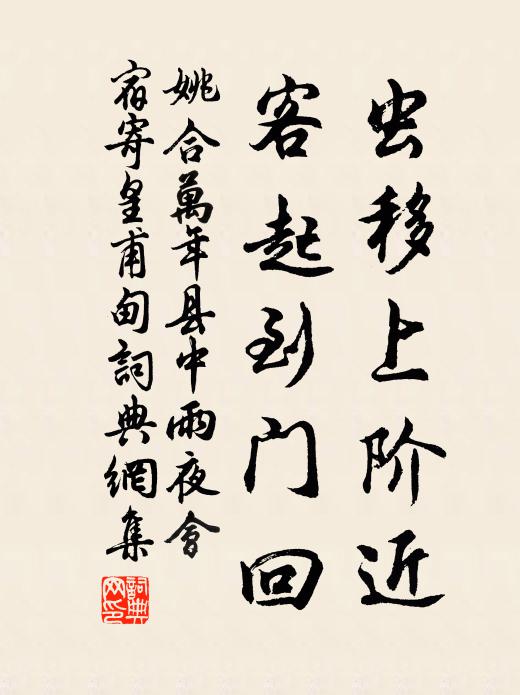 虫移上阶近
客起到门回
姚合萬年县中雨夜會
宿寄皇甫甸詞典網集
詞典网印